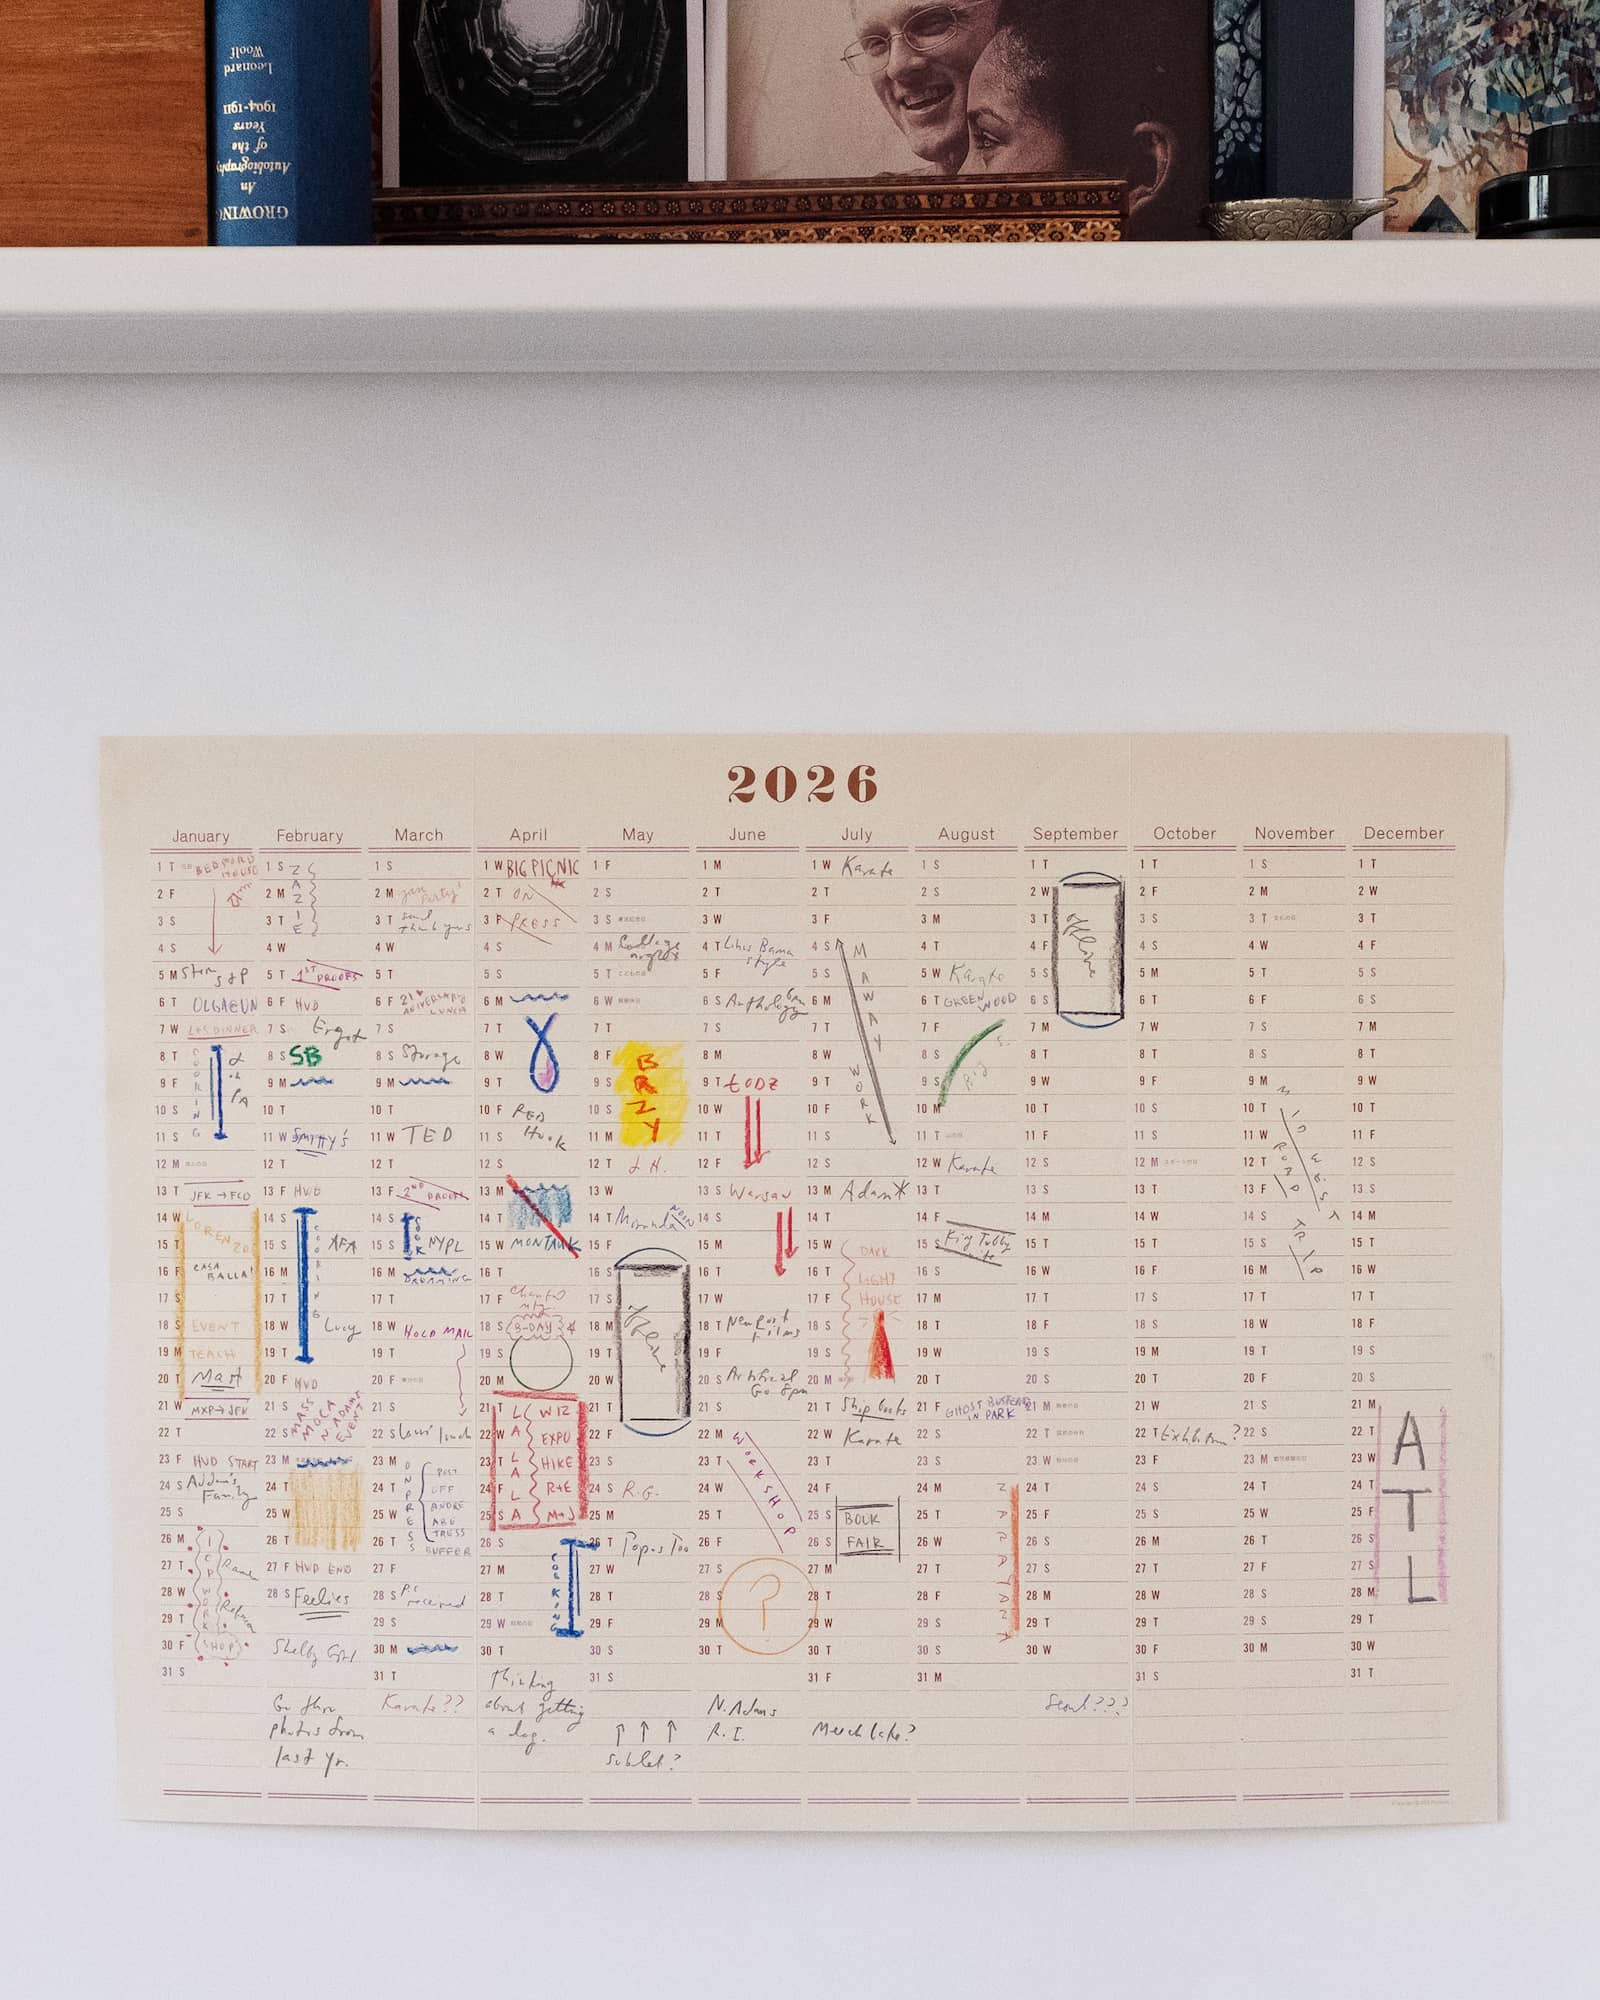 GROWING
An
Autobiography
of the
Years
1904-1911
Leonard
Woolf
2026
January
1 T BEDFORD
HOUSE
2 F
3 S
4 S
5 M
6 T OLGA EUN
7 W L+S DINNER
8 T
9 F
10 S
11 S
12 M
13 T JFK → FCO
14 W LORENZO
15 T
16 F CASA
BALLA!
17 S
18 S EVENT
19 M TEACH
20 T Mart
21 W MXP → JFK
22 T
23 F HVD START
24 S Addam's
Family
25 S
26 M
27 T
28 W
29 T
30 F SHOP
31 S
February
1 S
2 M
3 T
4 W
5 T 1ST PROOFS
6 F HVD
7 S Ergot
8 S SB
9 M
10 T
11 W SMITTY'S
12 T
13 F HVD
14 S
15 S AFA
16 M
17 T
18 W Lucy
19 T
20 F HVD
21 S MASS
MOCA
N. ADAMS
EVENT
22 S
23 M
24 T
25 W
26 T
27 F HVD END
28 S Feelies
Go thru
photos from
last yr.
March
1 S
2 M Jan
Party!
3 T send
thank yous
4 W
5 T
6 F 21ST
ANIVERSARY
LUNCH
7 S
8 S Storage
9 M
10 T
11 W TED
12 T
13 F 2ND PROOFS
14 S
15 S NYPL
16 M DRUMMING
17 T
18 W HOLD MAIL
19 T
20 F
21 S
22 S Louis' lunch
23 M
24 T
25 W
26 T
27 F
28 S
received
29 S
30 M
31 T
Karate??
April
1 W BIG PICNIC
2 T ON
3 F PRESS
4 S
5 S
6 M
7 T
8 W
9 T
10 F RED
11 S Hook
12 S
13 M
14 T
15 W MONTAUK
16 T
17 F
18 S B-DAY
19 S
20 M
21 T WIZ
22 W EXPO
23 T HIKE
24 F R+E
25 S M+J
26 S
27 M
28 T
29 W
30 T
Thinking
about getting
a dog.
May
1 F
2 S
3 S
4 M College
5 T
6 W
7 T
8 F BRZY
9 S
10 S
11 M
12 T L.H.
13 W
14 T Miranda NOON
15 F
16 S
17 S
18 M
19 T
20 W
21 T
22 F
23 S
24 S R.G.
25 M
26 T Topos Too
27 W
28 T
29 F
30 S
31 S
↑ ↑ ↑
sublet?
June
1 M
2 T
3 W
4 T
style
5 F
6 S Anthology 6pm
7 S
8 M
9 T ŁODZ
10 W
11 T
12 F
13 S Warsaw
14 S
15 M
16 T
17 W
18 T New Port
Films
19 F
20 S Artificial
Go 8pm
21 S
22 M WORKSHOP
23 T
24 W
25 T
26 F
27 S
28 S ?
29 M
30 T
N. Adams
R.I.
July
1 W Karate
2 T
3 F
4 S M AWAY WORK
5 S
6 M
7 T
8 W
9 T
10 F
11 S
12 S
13 M Adam
14 T
15 W DARK
16 T LIGHT
17 F HOUSE
18 S
19 S
20 M
21 T Ship books
22 W Karate
23 T
24 F
25 S BOOK
26 S FAIR
27 M
28 T
29 W
30 T
31 F
Merch late?
August
1 S
2 S
3 M
4 T
5 W Karate
6 T GREENWOOD
7 F
8 S
9 S
10 M
11 T
12 W Karate
13 T
14 F
15 S Fig Tubby
16 S
17 M
18 T
19 W
20 T
21 F GHOST BUSTERS
IN PARK
22 S
23 S
24 M
25 T
26 W
27 T
28 F
29 S
30 S
31 M
September
1 T
2 W
3 T
4 F
5 S
6 S
7 M
8 T
9 W
10 T
11 F
12 S
13 S
14 M
15 T
16 W
17 T
18 F
19 S
20 S
21 M
22 T
23 W
24 T
25 F
26 S
27 S
28 M
29 T
30 W
Seoul???
October
1 T
2 F
3 S
4 S
5 M
6 T
7 W
8 T
9 F
10 S
11 S
12 M
13 T
14 W
15 T
16 F
17 S
18 S
19 M
20 T
21 W
22 T Exhibition?
23 F
24 S
25 S
26 M
27 T
28 W
29 T
30 F
31 S
November
1 S
2 M
3 T
4 W
5 T
6 F
7 S
8 S
9 M MIDWEST
10 T ROAD TRIP
11 W
12 T
13 F
14 S
15 S
16 M
17 T
18 W
19 T
20 F
21 S
22 S
23 M
24 T
25 W
26 T
27 F
28 S
29 S
30 M
December
1 T
2 W
3 T
4 F
5 S
6 S
7 M
8 T
9 W
10 T
11 F
12 S
13 S
14 M
15 T
16 W
17 T
18 F
19 S
20 S
21 M
22 T ATL
23 W
24 T
25 F
26 S
27 S
28 M
29 T
30 W
31 T